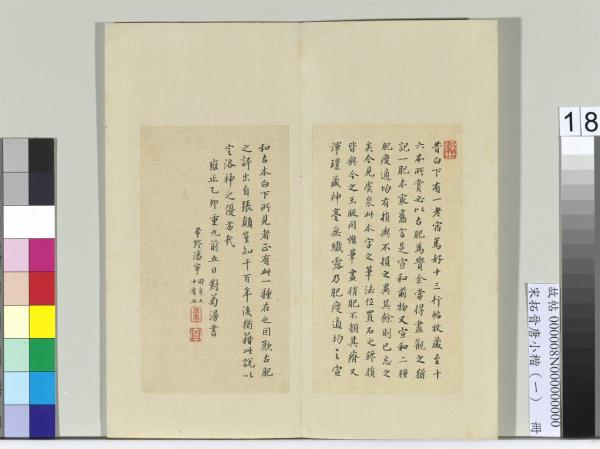 昔白下有一老宿篤好十三行帖收藏至十
六本所賞必以古肥為貴余嘗得盡觀之猶
記一肥本家舊言是宣和前物又宣和二種
肥瘦適均有損與不損之異其餘則已忘之
矣今見虞泉此本字之筆法位置石之鎸損
皆與今之玉版同惟筆畫稍肥不類其瘠又
渾璞藏神毫無纖露乃肥瘦適均之宣
和古本白下所見者正有此一種在也因歎古肥
之評出自張顛豈知千百年後猶藉此說以
定洛神之優劣哉
雍正乙卯重九前五日對菊漫書
莘野潘寧
時年七
十有五
18
故帖 000008N000000000
宋拓晉唐小楷(一) 冊